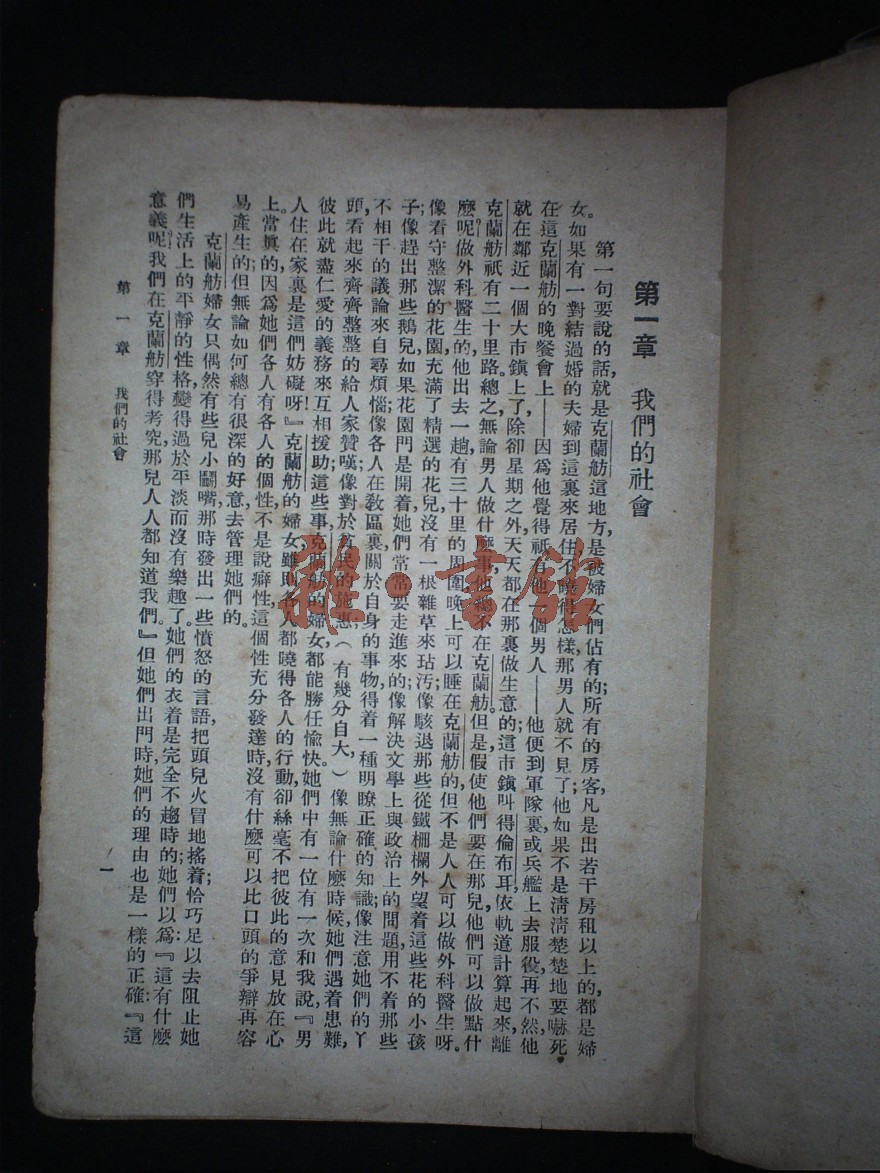 第一章　我們的社會
第一句要說的話，就是克蘭舫這地方，是被婦女們佔有的；所有的房客，凡是出若干房租以上的，都是婦
女。如果有一對結過婚的夫婦到這裏來居住，不曉得怎樣，那男人就不見了；他如果不是清清楚楚地要嚇死
在這克蘭舫的晚餐會上——因爲他覺得祇有他一個男人——他便到軍隊裏，或兵艦上去服役，再不然，他
就在鄰近一個大市鎮上了，除卻星期之外，天天都在那裏做生意的；這市鎮叫得倫布耳，依軌道計算起來，離
克蘭舫祇有二十里路。總之，無論男人做什麼事，他總不在克蘭舫。但是假使他們要在那兒，他們可以做點什
麼呢？做外科醫生的，他出去一趟，有三十里的周圍，晚上可以睡在克蘭舫的，但不是人人可以做外科醫生呀。
像看守整潔的花園，充滿了精選的花兒，沒有一根雜草來玷汚；像駭退那些從鐵柵欄外望着這些花的小孩
子；像趕出那些鵝兒，如果花園門是開着，她們常常要走進來的；像解決文學上與政治上的問題，用不着那些
不相干的議論來自尋煩惱；像各人在敎區裏，關於自身的事物，得着一種明瞭正確的知識；像注意她們的丫
頭，看起來齊齊整整的給人家贊嘆；像對於貧民的施惠，（有幾分自大，）像無論什麼時候，她們遇着患難，
彼此就盡仁愛的義務來互相援助；這些事，克蘭舫的婦女，都能勝任愉快。她們中有一位有一次和我說，『男
人住在家裏是這們妨礙呀！』克蘭舫的婦女，雖則各人都曉得各人的行動，卻絲毫不把彼此的意見放在心
上。當眞的，因爲她們各人有各人的個性，不是說癖性，這個性充分發達時，沒有什麼可以比口頭的爭辯再容
易產生的；但無論如何，總有很深的好意，去管理她們的。
克蘭舫婦女只偶然有些兒小鬭嘴，那時發出一些憤怒的言語，把頭兒火冒地搖着；恰巧足以去阻止她
們生活上的平靜的性格，變得過於平淡而沒有樂趣了。她們的衣着是完全不趨時的；她們以爲：『這有什麼
意義呢？我們在克蘭舫穿得考究，那兒人人都知道我們。』但她們出門時，她們的理由也是一樣的正確：『這
第一章　我們的社會
一
雅·書館